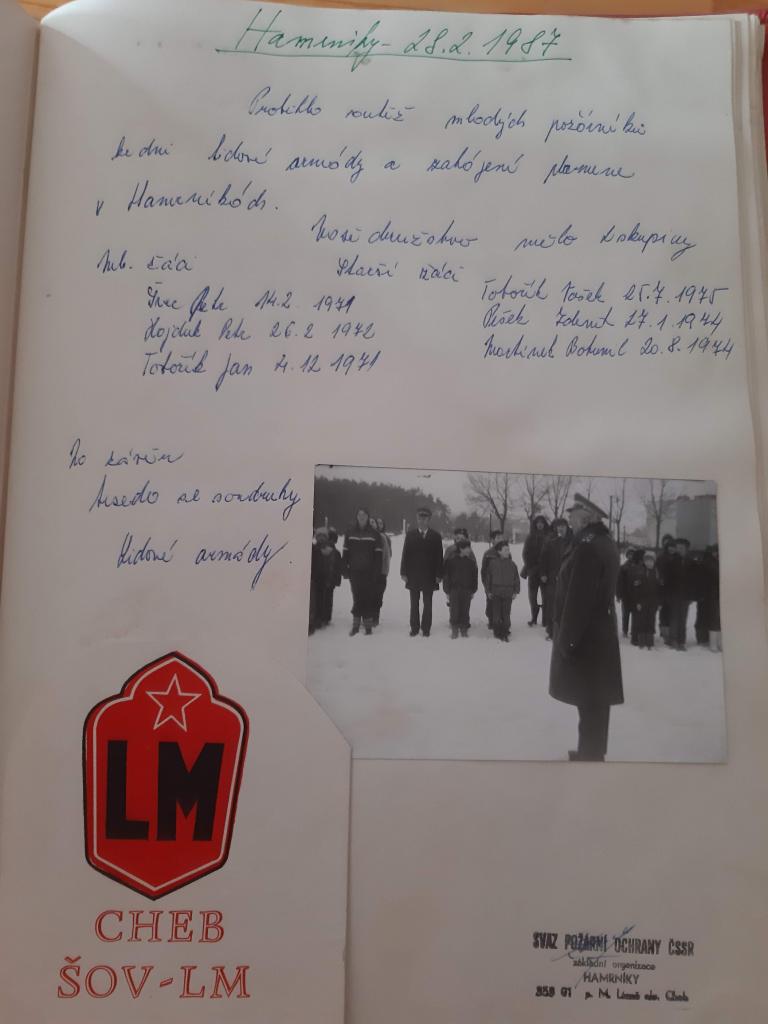 Hamrníky - 28.2.1987
Proběhla soutěž mladých požárníků
ke dni lidové armády a zahájení plamene
v Hamrníkách.
Naše družstvo mělo 2 skupiny
Ml. žáci
Starší žáci
Petr 14.2. 1971
Hojduk Petr 26.2 1972
Totočík Jan 4.12 1971
Totočík Vašek 25.7.1975
Pešek Zdeněk 27.1.1974
Martínek Bohumil 20.8.1974
Na závěr
beseda se soudruhy
Lidové armády.
LM
CHEB
ŠOV-LM
SVAZ POŽÁRNÍ OCHRANY ČSSR
základní organizace
HAMRNÍKY
353 01 p. M. Lázně okr. Cheb